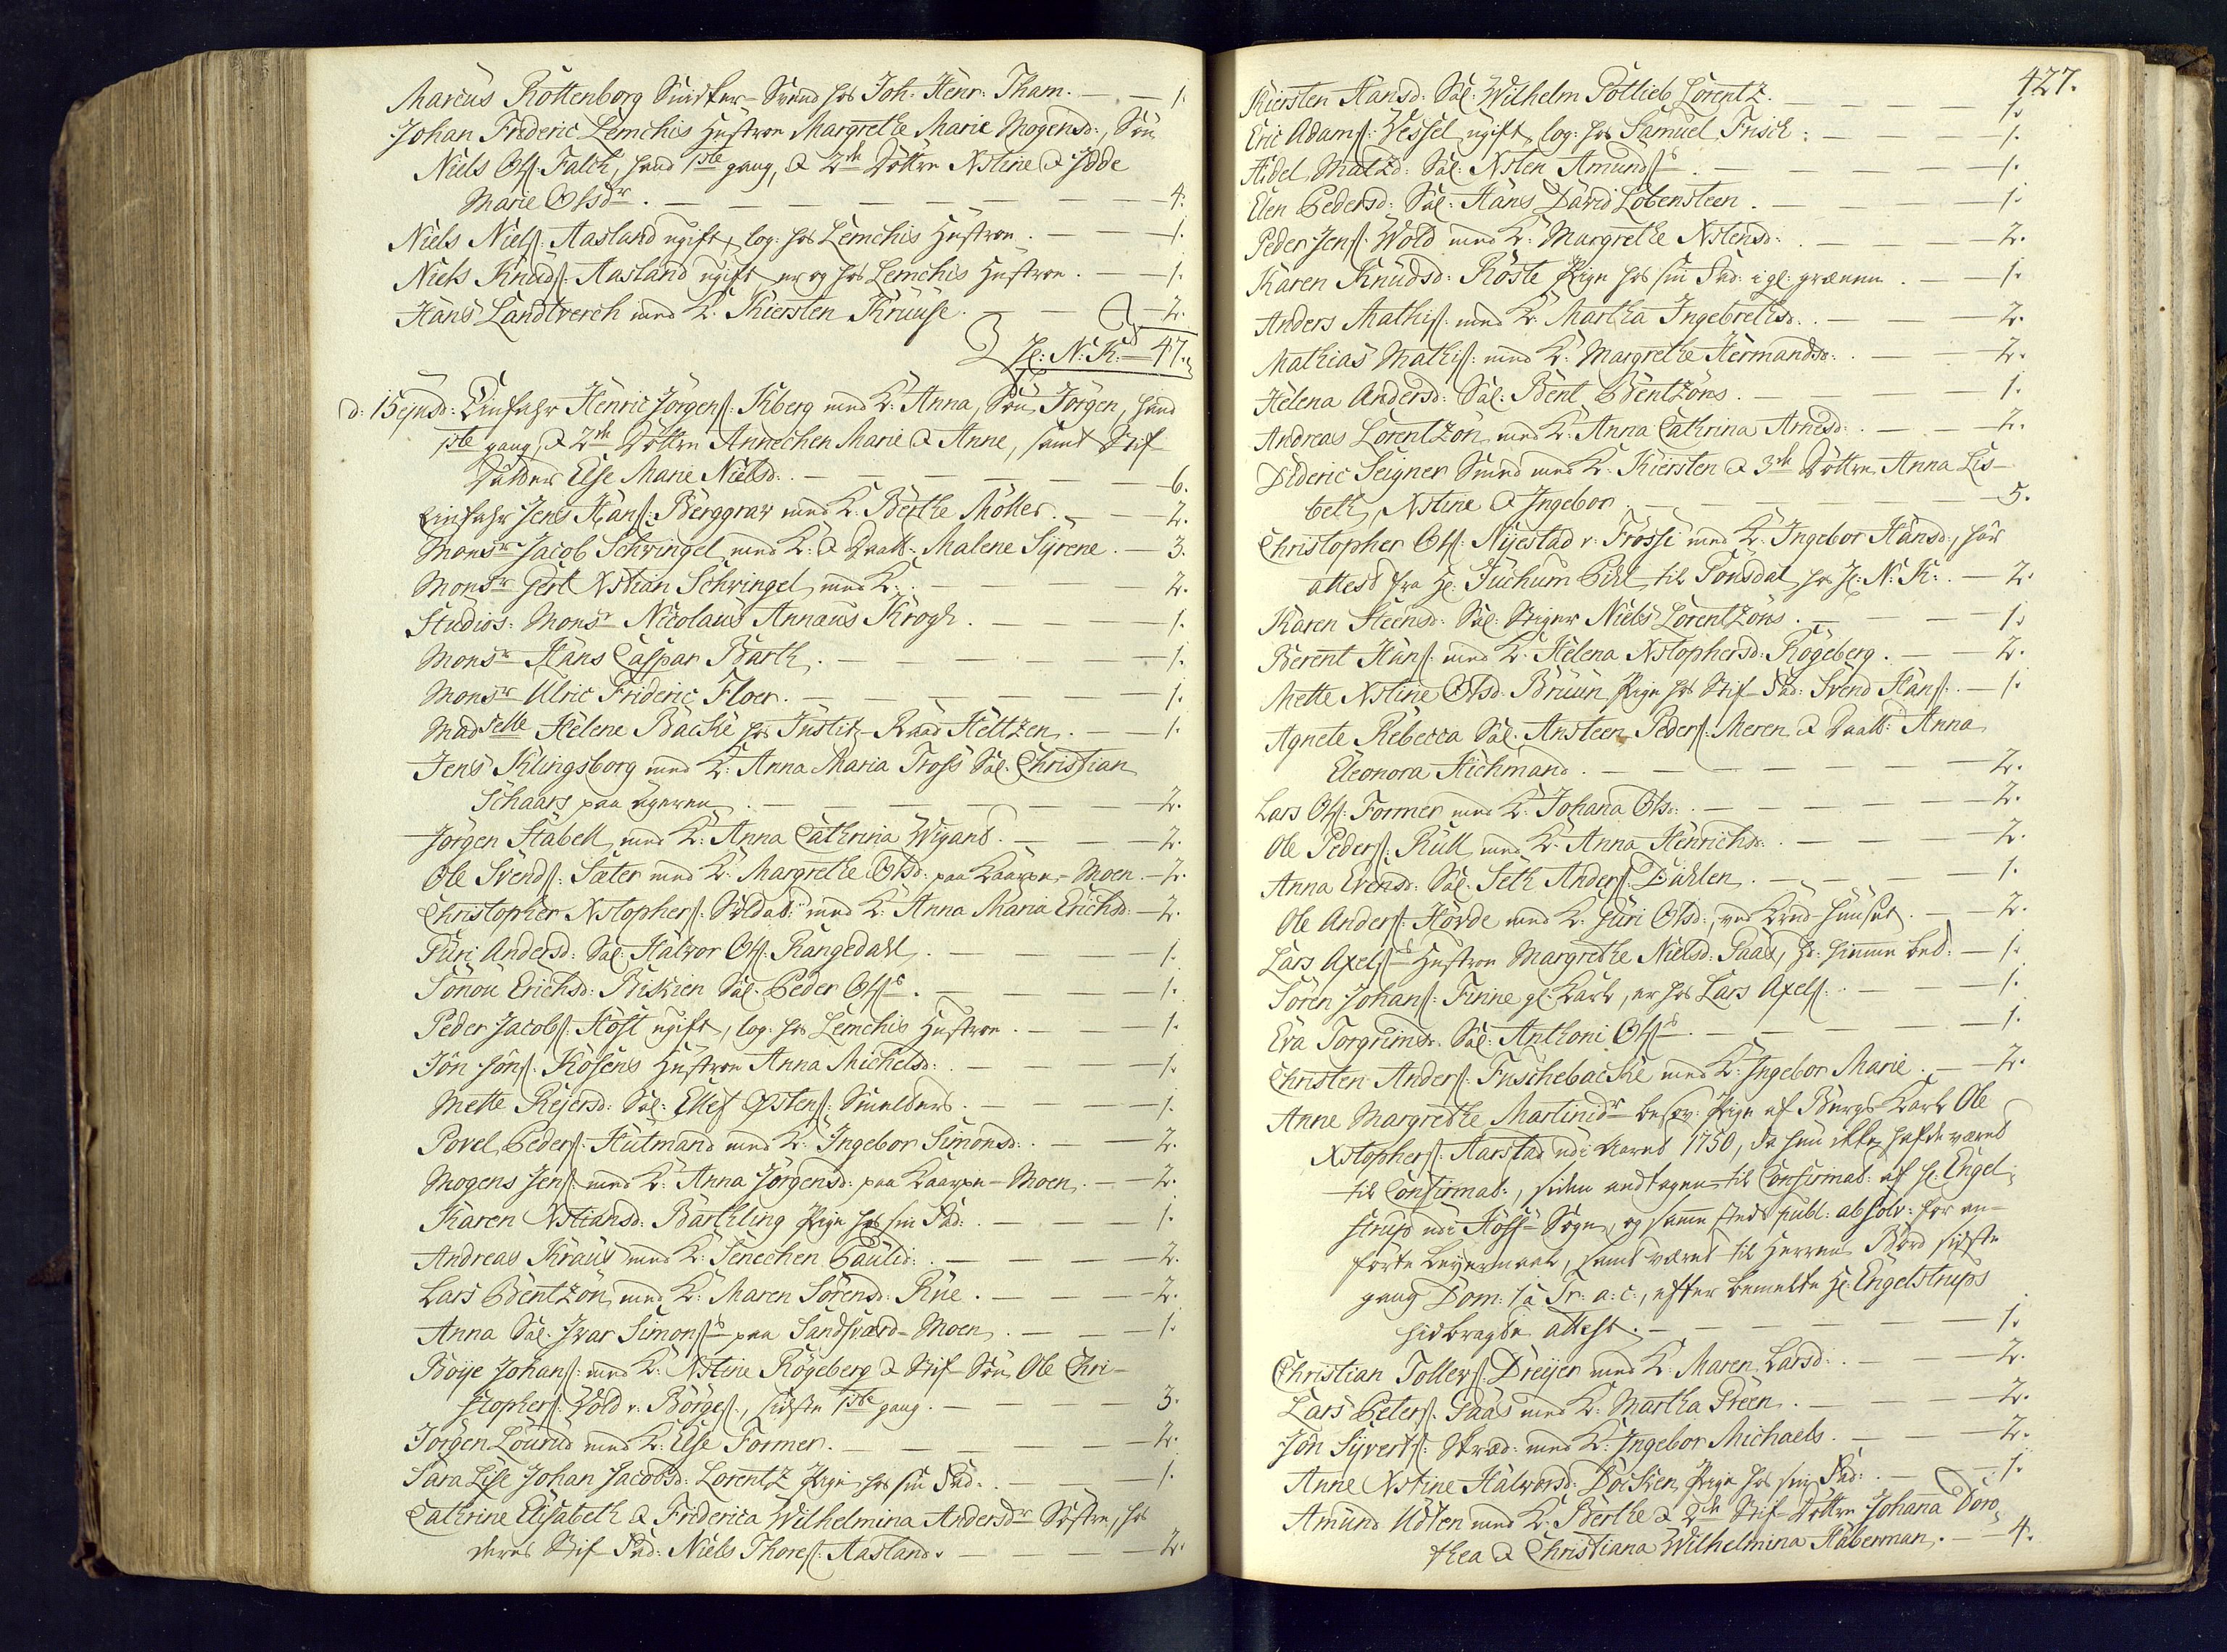 Marcus Rottenborg Snidker-Svend hos Joh: Henr: Tham. — — 1.
Johan Frideric Lemchis Hustroe Margrethe Marie Mogensd:, Søn
Niels Olſ: Falck, hand 1ste gang, & 2de Døttre Xstine & Jdde
Marie Olsdr. — — — — — — — — 4.
Niels Nielſ: Aasland ugift, log: hos Lemchis Hustroe. — — 1.
Niels Knudſ: Aasland ugift er og hos Lemchis Hustroe. — 1.
Hans Landtverch med K: Kiersten Kruuse. — — 2.
H: N: K: — 47.
d: 15 ejusd: Einfahr Henric Jörgenſ: Kiberg med K: Anna, Søn Jörgen, hand
1ste gang, & 2de Døttre Annechen Marie & Anne, samt Stif-
Datter Else Marie Nielsd: — — — — — 6.
Einfahr Jens Hanſ: Berggrav med K: Berthe Möller. — — 2.
Monsr Jacob Schwingel med K: & Daatt: Malene Syrene. — 3.
Monsr Gert Xstian Schwingel med K: — — — 2.
Studios: Monsr Nicolaus Annæus Krogh. — — — 1.
Monsr Hans Caspar Barth. — — — — 1.
Monsr Ulric Frideric Floer. — — — — 1.
Madselle Helene Backe hos Justitz-Raad Heltzen. — — 1.
Jens Klingsborg med K: Anna Maria Tross Sal: Christian
Schaars paa Ageren. — — — — — 2.
Jörgen Stabell med K: Anna Cathrina Wigant. — — 2.
Ole Svendſ: Sæter med K: Margrethe Olsd: paa Kaarpe-Moen. — 2.
Christopher Xstopherſ: Soldat med K: Anna Maria Erichsd: — 2.
Turi Andersd: Sal: Halvor Olſ: Rangedahl. — — — 1.
Tönou Erichsd: Biskien Sal: Peder Olſs. — — — 1.
Peder Jacobſ: Höst ugift, log: hos Lemchis Hustroe. — — 1.
Jön Jönſ: Kösens Hustroe Anna Michelsd: — — — 1.
Mette Rejersd: Sal: Ellef Östenſ: Smelters. — — — 1.
Povel Pederſ: Hutmand med K: Ingebor Simonsd: — — 2.
Mogens Jenſ: med K: Anna Jörgensd: paa Kaarpe-Moen. — 2.
Karen Xstiansd: Barthling Pige hos sin Fad: — — — 1.
Andreas Kraus med K: Lenechen Paulsd: — — — 2.
Lars Bentzön med K: Maren Sörensd: Rue. — — — 2.
Anna Sal: Jvar Simonſs paa Sandsværd-Moen. — — 1.
Boye Johanſ: med K: Xstine Rögeberg & Stif-Søn Ole Chri-
stopherſ: Vold v: Börgeſ:, sidste 1ste gang. — — — 3.
Jörgen Lound med K: Else Former. — — — — 2.
Sara Lise Johan Jacobsd: Lorentz Pige hos sin Fad: — — 1.
Cathrine Elisabeth & Friderica Wilhelmina Andersdr Søstre, hos
deres Stif-Fad: Niels Thoreſ: Aasland. — — — 2.
427.
Kiersten Hansd: Sal: Wilhelm Gotlieb Lorentz. — — — 1.
Eric Adamſ: Vessel ugift, log: hos Samuel Frisch: — — — 1.
Hidel Matzd: Sal: Xsten Amundſs. — — — — 1.
Elen Pedersd: Sal: Hans David Lobensteen. — — — 1.
Peder Jenſ: Wold med K: Margrethe Xstensd: — — — 2.
Karen Knudsd: Röste Pige hos sin Fad: i gl: — 1.
Anders Mathiſ: med K: Martha Ingebrethsd: — — — 2.
Mathias Mathiſ: med K: Margrethe Hermandsd: — — — 2.
Helena Andersd: Sal: Bent Bentzöns. — — — 1.
Andreas Lorentzön med K: Anna Cathrina Arnesd: — — 2.
Dideric Seigner Smed med K: Kiersten & 3de Døttre Anna Lis-
beth, Xstine & Ingebor. — — — — — 5.
Christopher Olſ: Nyestad v: Frossi med K: Ingebor Hansd:, har
attest fra H: Juchum Pihl til Tonsdal hos H: N: K: — 2.
Karen Steensd: Sal: Stiger Niels Lorentzöns. — — — 1.
Berent Hanſ: med K: Helena Xstophersd: Rögeberg. — — 2.
Mette Xstine Olsd: Bruun Pige hos Stif-Fad: Svend Hanſ: — 1.
Agnete Rebecca Sal: Ansteen Pederſ: Meren & Daatt: Anna
Eleonora Hichmand. — — — — — 2.
Lars Olſ: Former med K: Johana Olsd: — — — 2.
Ole Pederſ: Rull med K: Anna Henrichsd: — — — 2.
Anna Evensd: Sal: Seth Anderſ: Dahlen. — — — 1.
Ole Anderſ: Hovde med K: Guri Olsd:, ved Krud-Huuset. — 2.
Lars Axelſs Hustroe Margrethe Nielsd: Gaas, hd: hiemme bet: — 1.
Sören Johanſ: Finne gl: Karl, er hos Lars Axelſ: — — 1.
Eva Torgrimsd: Sal: Anthoni Olſs. — — — — 1.
Christen Anderſ: Fuschebacke med K: Ingebor Marie. — 2.
Anne Margrethe Martinidr besov: Pige af Bergs-Karl Ole
Xstopherſ: Aarstad udi Aaret 1750, da hun ikke hafde været
til Confirmat:, siden antagen til Confirmat: af H: Engel-
strup udi Hoffs-Sogn, og samme steds publ: absolv: for an-
förte Leyermaal, samt været til Herrens Bord sidste
gang Dom: 1 a Tr: a: c:, efter bemelte H: Engelstrups
hidbragte attest. — — — — — 1.
Christian Tollefſ: Dreyer med K: Maren Larsd: — — 2.
Lars Peterſ: Gaas med K: Martha Green. — — — 2.
Jön Syvertſ: Skræd: med K: Ingebor Michaels. — — 2.
Anne Xstine Halvorsd: Docken Pige hos sin Fad: — — 1.
Amund Udsen med K: Berthe & 2de Stif-Døttre Johanna Doro-
thea & Christiana Wilhelmina Haberman. — 4.